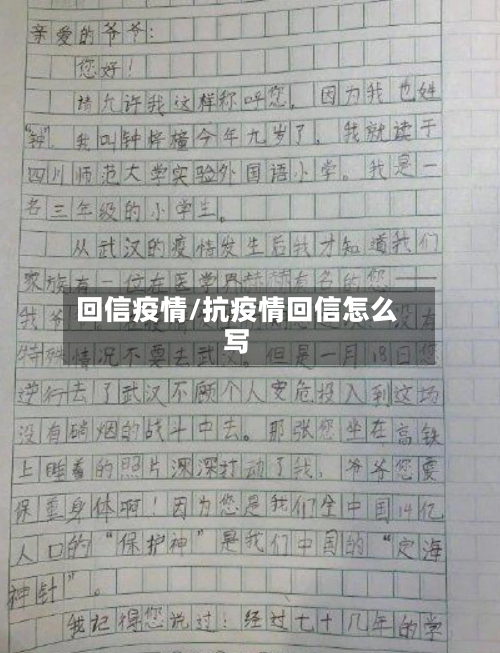 亲爱的爷爷:
您好!
请允许我这样称呼您,因为我也姓
"钟",我叫钟梓橦今年九岁了,我就读于
四川师范大学实验外国语小学。我是一
名三年级的小学生。
从武汉的疫情发生后我才知道我们
家族有一位在医学界赫赫有名的您——
回信疫情/抗疫情回信怎么
写
我爷 没有
特殊情况不要去武汉。但是一月18日您
逆行去了武汉不顾个人安危投入到这场
没有硝烟的战斗中去。那张您坐在高铁
上睡着的照片深深打动了我,爷爷您要
保重身体啊!因为您是我们全中国14亿
人口的"保护神"是我们中国的"定海
神针"。
我记得您说过:经过七十几年的学